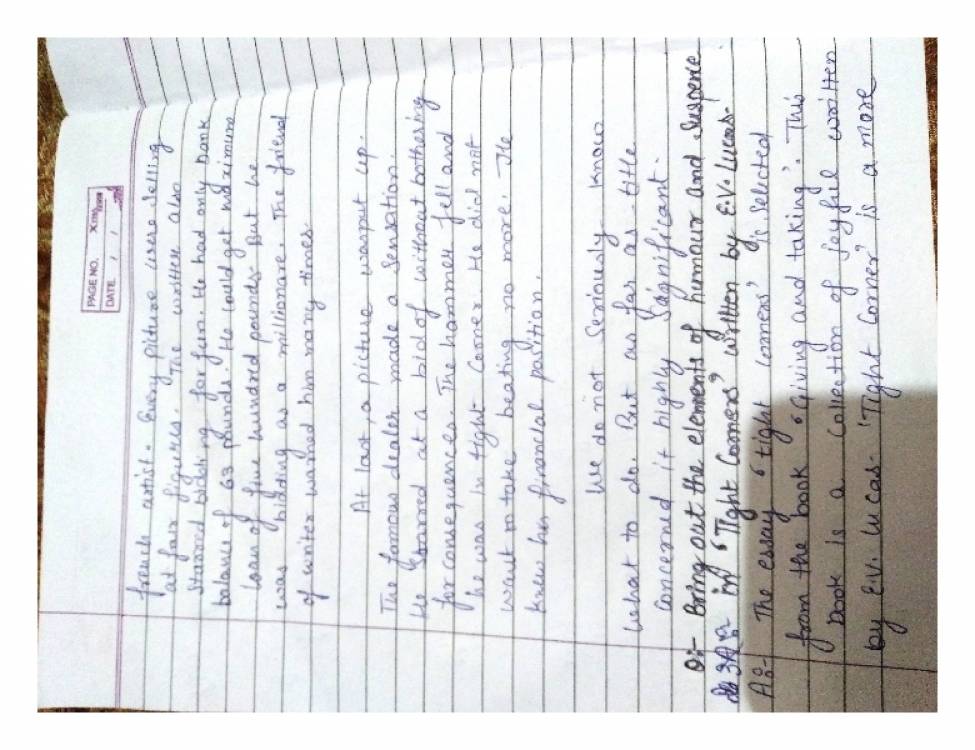 PAGE NO.
DATE / /
french artist. Every picture were selling
at fair figures. The writter also
Starred bidding for fun. He had only bank
balance of 63 phunds. He could get maximum
loan of five hundred pounds. But he
was bidding as a millionare. The friend
of writer warned him many times.
At last, a picture was put up.
The famous dealer made a Sensation.
He Starred at a bid of without bothering
for consequences. The hammer fell and
he was in tight Corner. He did not
want to take beating no more. He
knew his financial position.
We do not Seriously know
what to do. But as far as title
Concerned it highy Significant.
Q:- Bring out the elements of humour and suspense
in "Tight Corners" written by E.V. Lucas.
A:- The essay "tight Corners" is Selected
from the book "Giving and taking". This
book is a Collection of Joyful written
by E.V. Lucas. 'Tight Corner' is a more